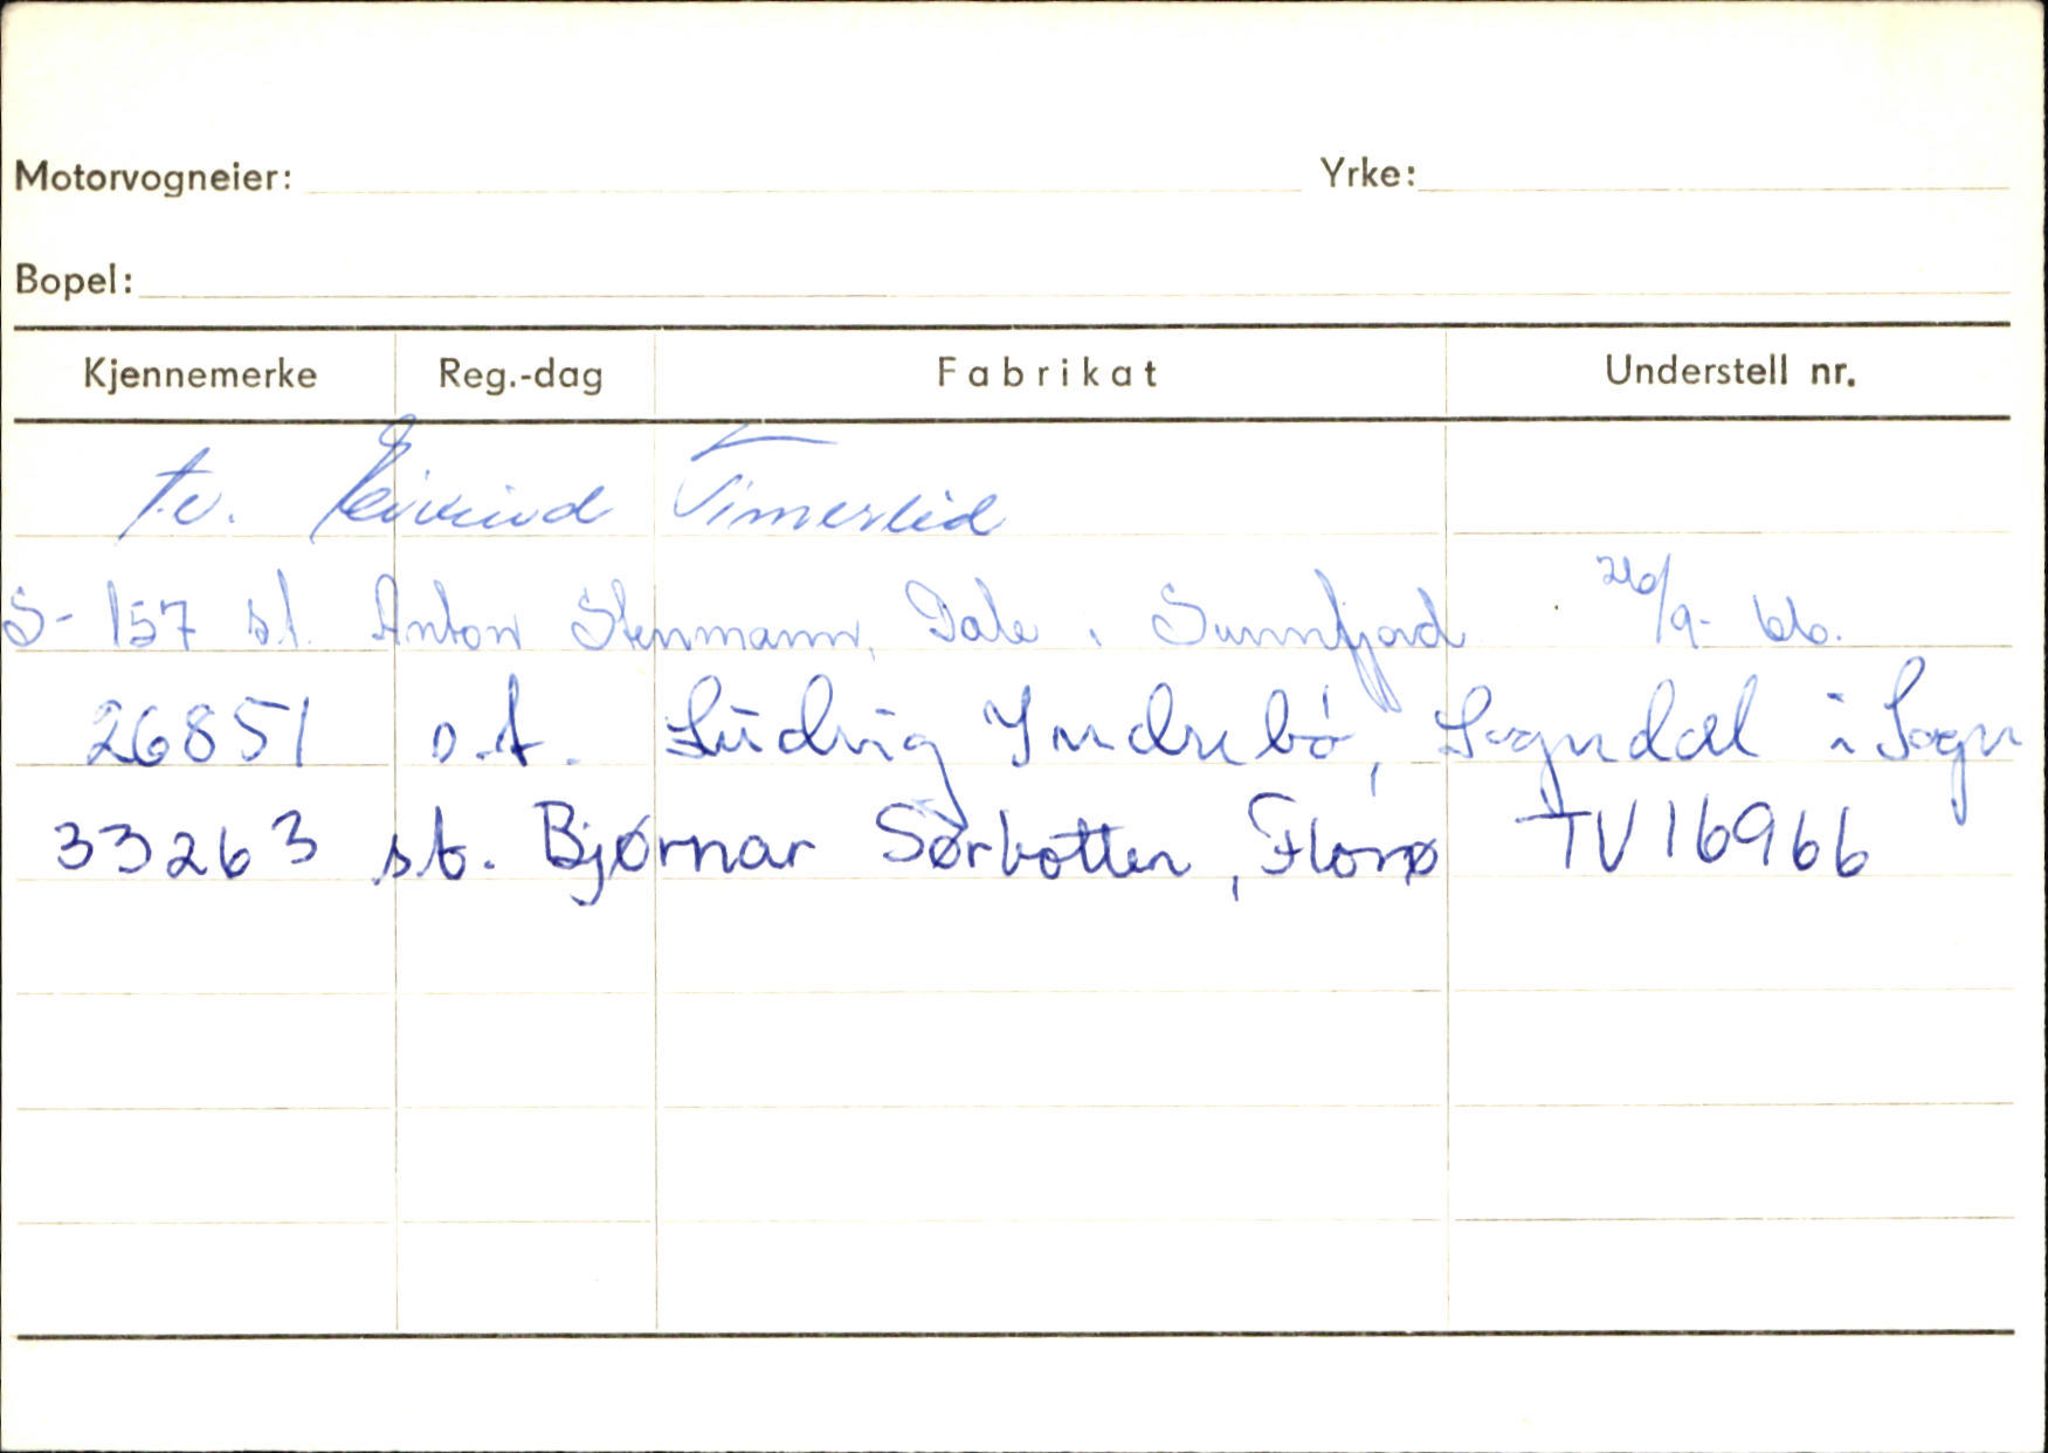 Motorvogneier: Yrke:
Bopel:
Kjennemerke Reg.-dag Fabrikat Understell nr.
Eivind Timerlid
S-157 s.t. Anton Stenmann, Dale i Sunnfjord 26/9-66.
26851 s.t. Ludvig Indrebø, Sogndal i Sogn
33263 s.t. Bjørnar Sørbotten, Florø TV16966